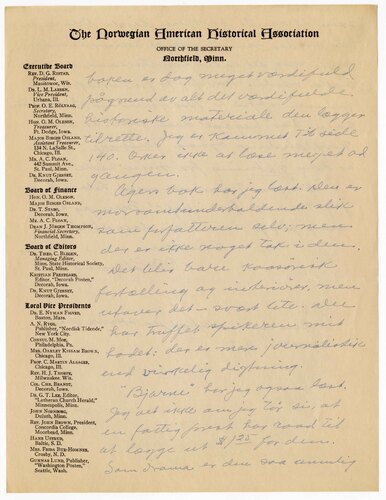 The Norwegian American Historical Association
OFFICE OF THE SECRETARY
Northfield, Minn.
Executive Board
REV. D. G. RISTAD,
President,
Manitowoc, Wis.
DR. L. M. LARSEN,
Vice President,
Urbana, Ill.
PROF. O. E. ROLVAAG,
Secretary,
Northfield, Minn.
HON. O. M. OLESON,
Treasurer,
Ft. Dodge, Iowa.
MAJOR BIRGER OSLAND,
Assistant Treasurer,
134 N. LaSalle St.,
Chicago, Ill.
MR. A. C. FLOAN,
442 Summit Ave.,
St. Paul, Minn.
DR. KNUT GJERSET,
Decorah, Iowa.
Board of Finance
HON. O. M. OLESON,
MAJOR BIRGER OSLAND,
DR. T. STABO,
Decorah, Iowa.
MR. A. C. FLOAN,
DEAN J. JÖRGEN THOMPSON,
Financial Secretary,
Northfield, Minn.
Board of Editors
DR. THEO. C. BLEGEN,
Managing Editor,
Minn. State Historical Society,
St. Paul, Minn.
KRISTIAN PRESTGARD,
Editor, "Decorah Posten,"
Decorah, Iowa.
DR. KNUT GJERSET,
Decorah, Iowa.
Local Vice Presidents
DR. E. NYMAN FIGVED,
Boston, Mass.
A. N. RYGG,
Publisher, "Nordisk Tidende,"
New York City.
CHRIST. M. MOE,
Philadelphia, Pa.
MRS. OAKLEY KISSAM BROWN,
Chicago, Ill.
PROF. C. MARTIN ALSAGER,
Chicago, Ill.
REV. H. J. THORPE,
Milwaukee, Wis.
CIR. CHR. BRANDT,
Decorah, Iowa.
DR. G. T. LEE, EDITOR
"Lutheran Church Herald,"
Minneapolis, Minn.
JOHN NORDBYE,
Duluth, Minn.
REV. JOHN BROWN, PRESIDENT,
Concordia College,
Moorhead, Minn.
HANS USTRUD,
Baltic, S. D.
MRS. FRIDA BUE-HOMNES,
Crosby, N. D.
GUNNAR LUND, Publisher,
"Washington Posten,"
Seattle, Wash.
boken er dog meget værdifuld
på grund av alt det værdifulde
historiske materiale den lægger
tilrette. Jeg er kommet til side
140. Orker ikke at læse meget ad
gangen.
bok har jeg læst. Den er
morsomt underholdende slik
som forfatteren selv; men
der er ikke noget tak i den.
Det blir bare
fortælling og interiør, men
utover det - svært lite. Du
har truffet spikeren mitt
hodet: der er mere journalistikk
end virkelig digtning.
"Bjarne" har jeg også læst.
Jeg at ikke an jeg for si, at
en fattig prest har råd til
at lægge ut $1.25 for den.
Som drama er den saa umulig